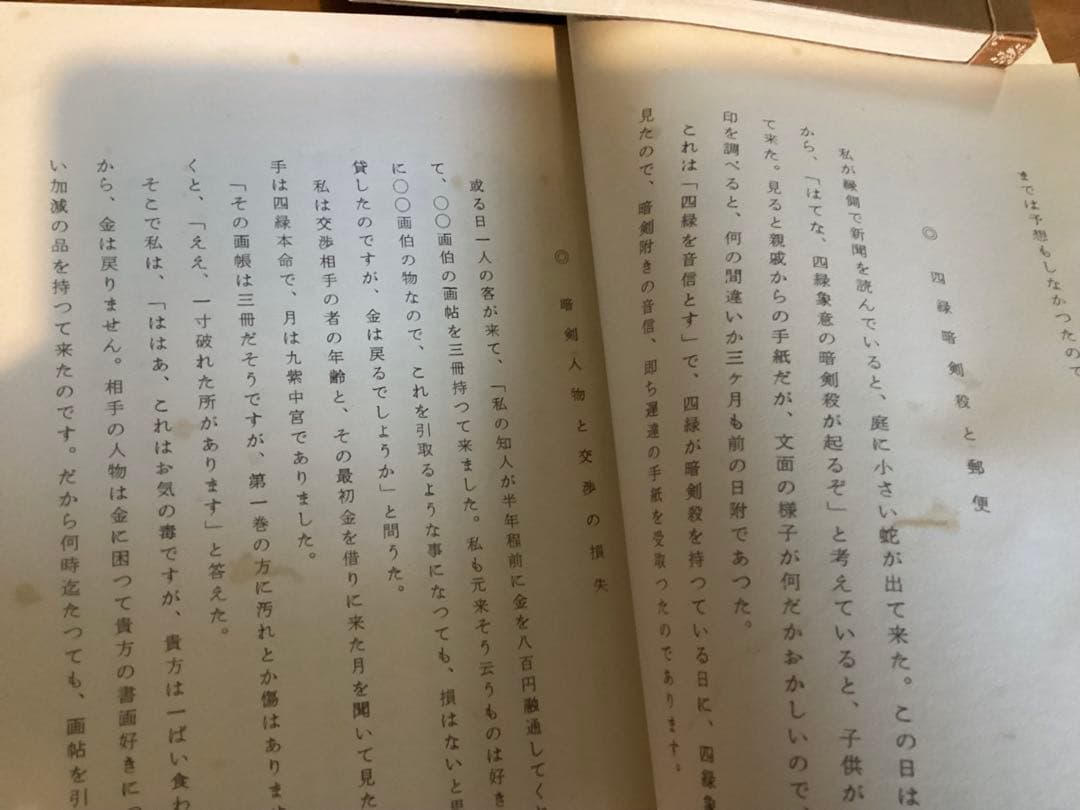 までは予想もしなかつたので
◎ 四緑暗剣殺と郵便
私が縁側で新聞を読んでいると、庭に小さい蛇が出て来た。この日は
から、「はてな、四緑象意の暗剣殺が起るぞ」と考えていると、子供が
て来た。見ると親戚からの手紙だが、文面の様子が何だかおかしいので
印を調べると、何の間違いか三ヶ月も前の日附であつた。
これは「四緑を音信とす」で、四緑が暗剣殺を持つている日に、四緑象
見たので、暗剣附きの音信、即ち遅達の手紙を受取つたのであります。
◎ 暗剣人物と交渉の損失
或る日一人の客が来て、「私の知人が半年程前に金を八百円融通してく
て、〇〇画伯の画帖を三冊持つて来ました。私も元来そう云うものは好き
に〇〇画伯の物なので、これを引取るような事になつても、損はないと思
貸したのですが、金は戻るでしようか」と問うた。
私は交渉相手の者の年齢と、その最初金を借りに来た月を聞いて見た
手は四緑本命で、月は九紫中宮でありました。
「その画帳は三冊だそうですが、第一巻の方に汚れとか傷はありませ
くと、「ええ、一寸破れた所があります」と答えた。
そこで私は、「ははあ、これはお気の毒ですが、貴方は一ぱい食わ
から、金は戻りません。相手の人物は金に困つて貴方の書画好きにつ
い加減の品を持つて来たのです。だから何時迄たつても、画帖を引